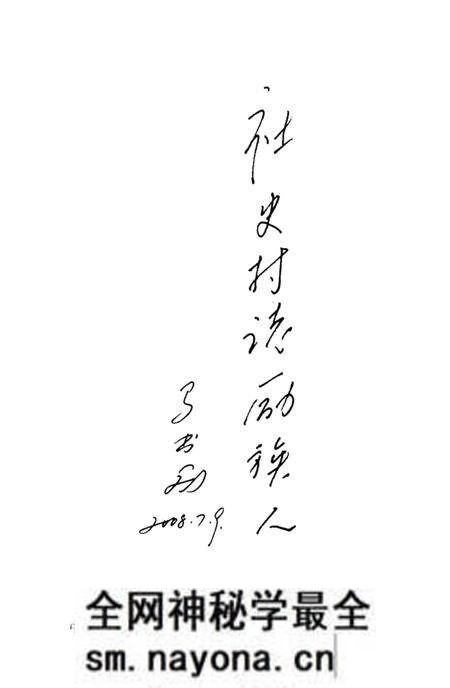 社史村誌励族人
马书
2008.7.9.
全网神秘学最全
sm.nayona.cn